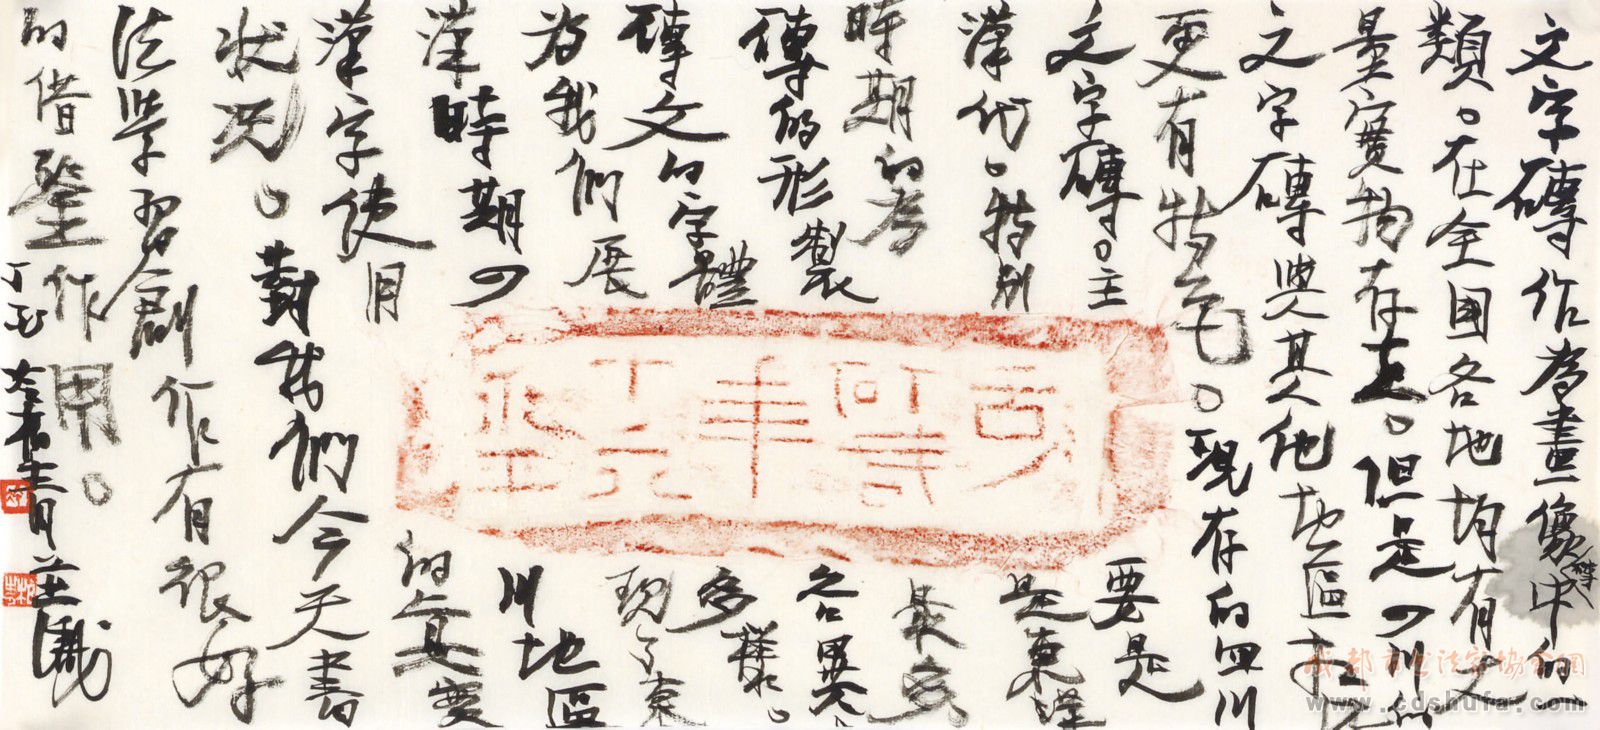 文字磚作為畫像磚中的
類。在全國各地均有大
量實物存在。但是四川的
文字磚與其他地區相比
更有特色。現存的四川
文字磚。主要是
漢代。特别是東漢
時期的為最多
磚的形製各異
磚文的字體多樣。
為我們展現了東
漢時期四川地區
漢字使用的真實
狀況。對我們今天書
法學習創作有很好
的借鑒作用。
丁酉年春三月
年
丁
成都市书法家协会网
www.cdshufa.com